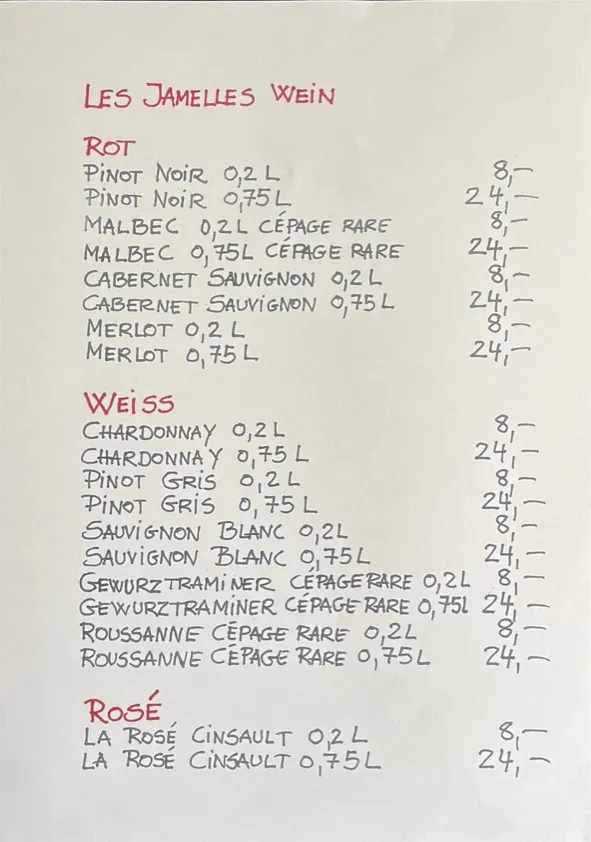 LES JAMELLES WEIN
ROT
PINOT NOIR 0,2 L 8,—
PINOT NOIR 0,75 L 24,—
MALBEC 0,2 L CÉPAGE RARE 8,—
MALBEC 0,75L CÉPAGE RARE 24,—
CABERNET SAUVIGNON 0,2 L 8,—
CABERNET SAUVIGNON 0,75 L 24,—
MERLOT 0,2 L 8,—
MERLOT 0,75 L 24,—
WEISS
CHARDONNAY 0,2 L 8,—
CHARDONNAY 0,75 L 24,—
PINOT GRIS 0,2 L 8,—
PINOT GRIS 0,75 L 24,—
SAUVIGNON BLANC 0,2L 8,—
SAUVIGNON BLANC 0,75L 24,—
GEWURZTRAMINER CÉPAGE RARE 0,2L 8,—
GEWURZTRAMINER CÉPAGE RARE 0,75l 24,—
ROUSSANNE CÉPAGE RARE 0,2L 8,—
ROUSSANNE CÉPAGE RARE 0,75L 24,—
ROSÉ
LA ROSÉ CINSAULT 0,2 L 8,—
LA ROSÉ CINSAULT 0,75L 24,—